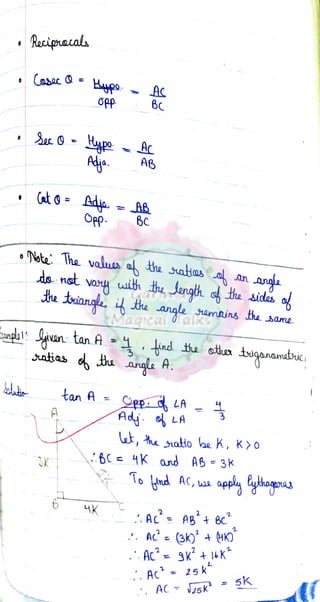 • Reciprocals
• Cosec θ = Hypo. / Opp. = AC / BC
• Sec θ = Hypo. / Adja. = AC / AB
• Cot θ = Adja. / Opp. = AB / BC
• Note: The values of the ratios of an angle
do not vary with the length of the sides of
the triangle, if the angle remains the same
Magical Talks
Example 1: Given tan A = 4/3, find the other trigonometric
ratios of the angle A.
Solution
tan A = Opp. of ∠A / Adj. of ∠A = 4/3
Let, the ratio be K, K>0
∴ BC = 4K and AB = 3K
To find AC, we apply Pythagoras
A
3K
B
4K
C
∴ AC² = AB² + BC²
∴ AC² = (3K)² + (4K)²
∴ AC² = 9K² + 16K²
∴ AC² = 25K²
∴ AC = √25K² = 5K